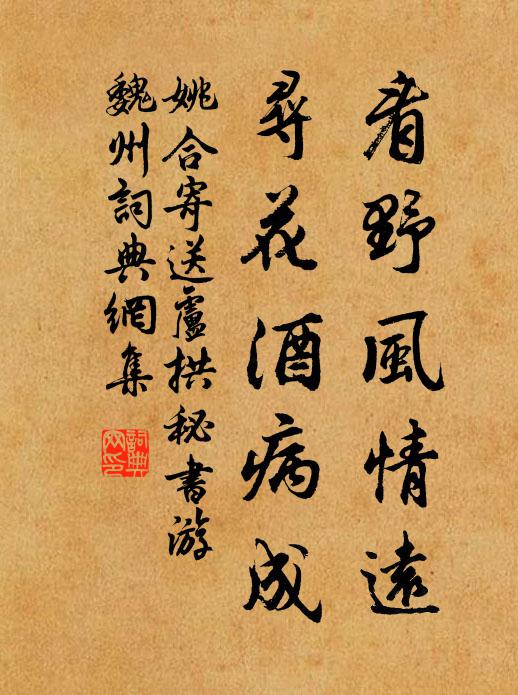 看野風情遠
尋花酒病成
姚合寄送盧拱秘書游
魏州詞典網集
詞典
网印